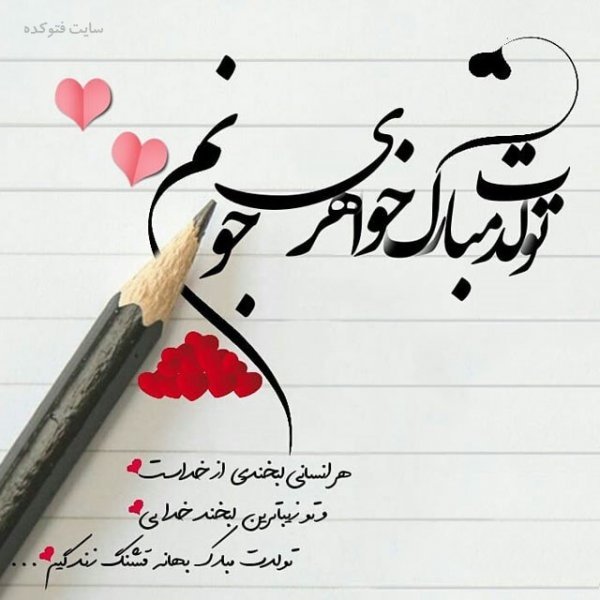 سایت فتوکده
تولدت مبارک خواهری جونم
هر انسانی لبخندی از خداست
و تو زیباترین لبخند خدایی
تولدت مبارک بهانه قشنگ زندگیم ...